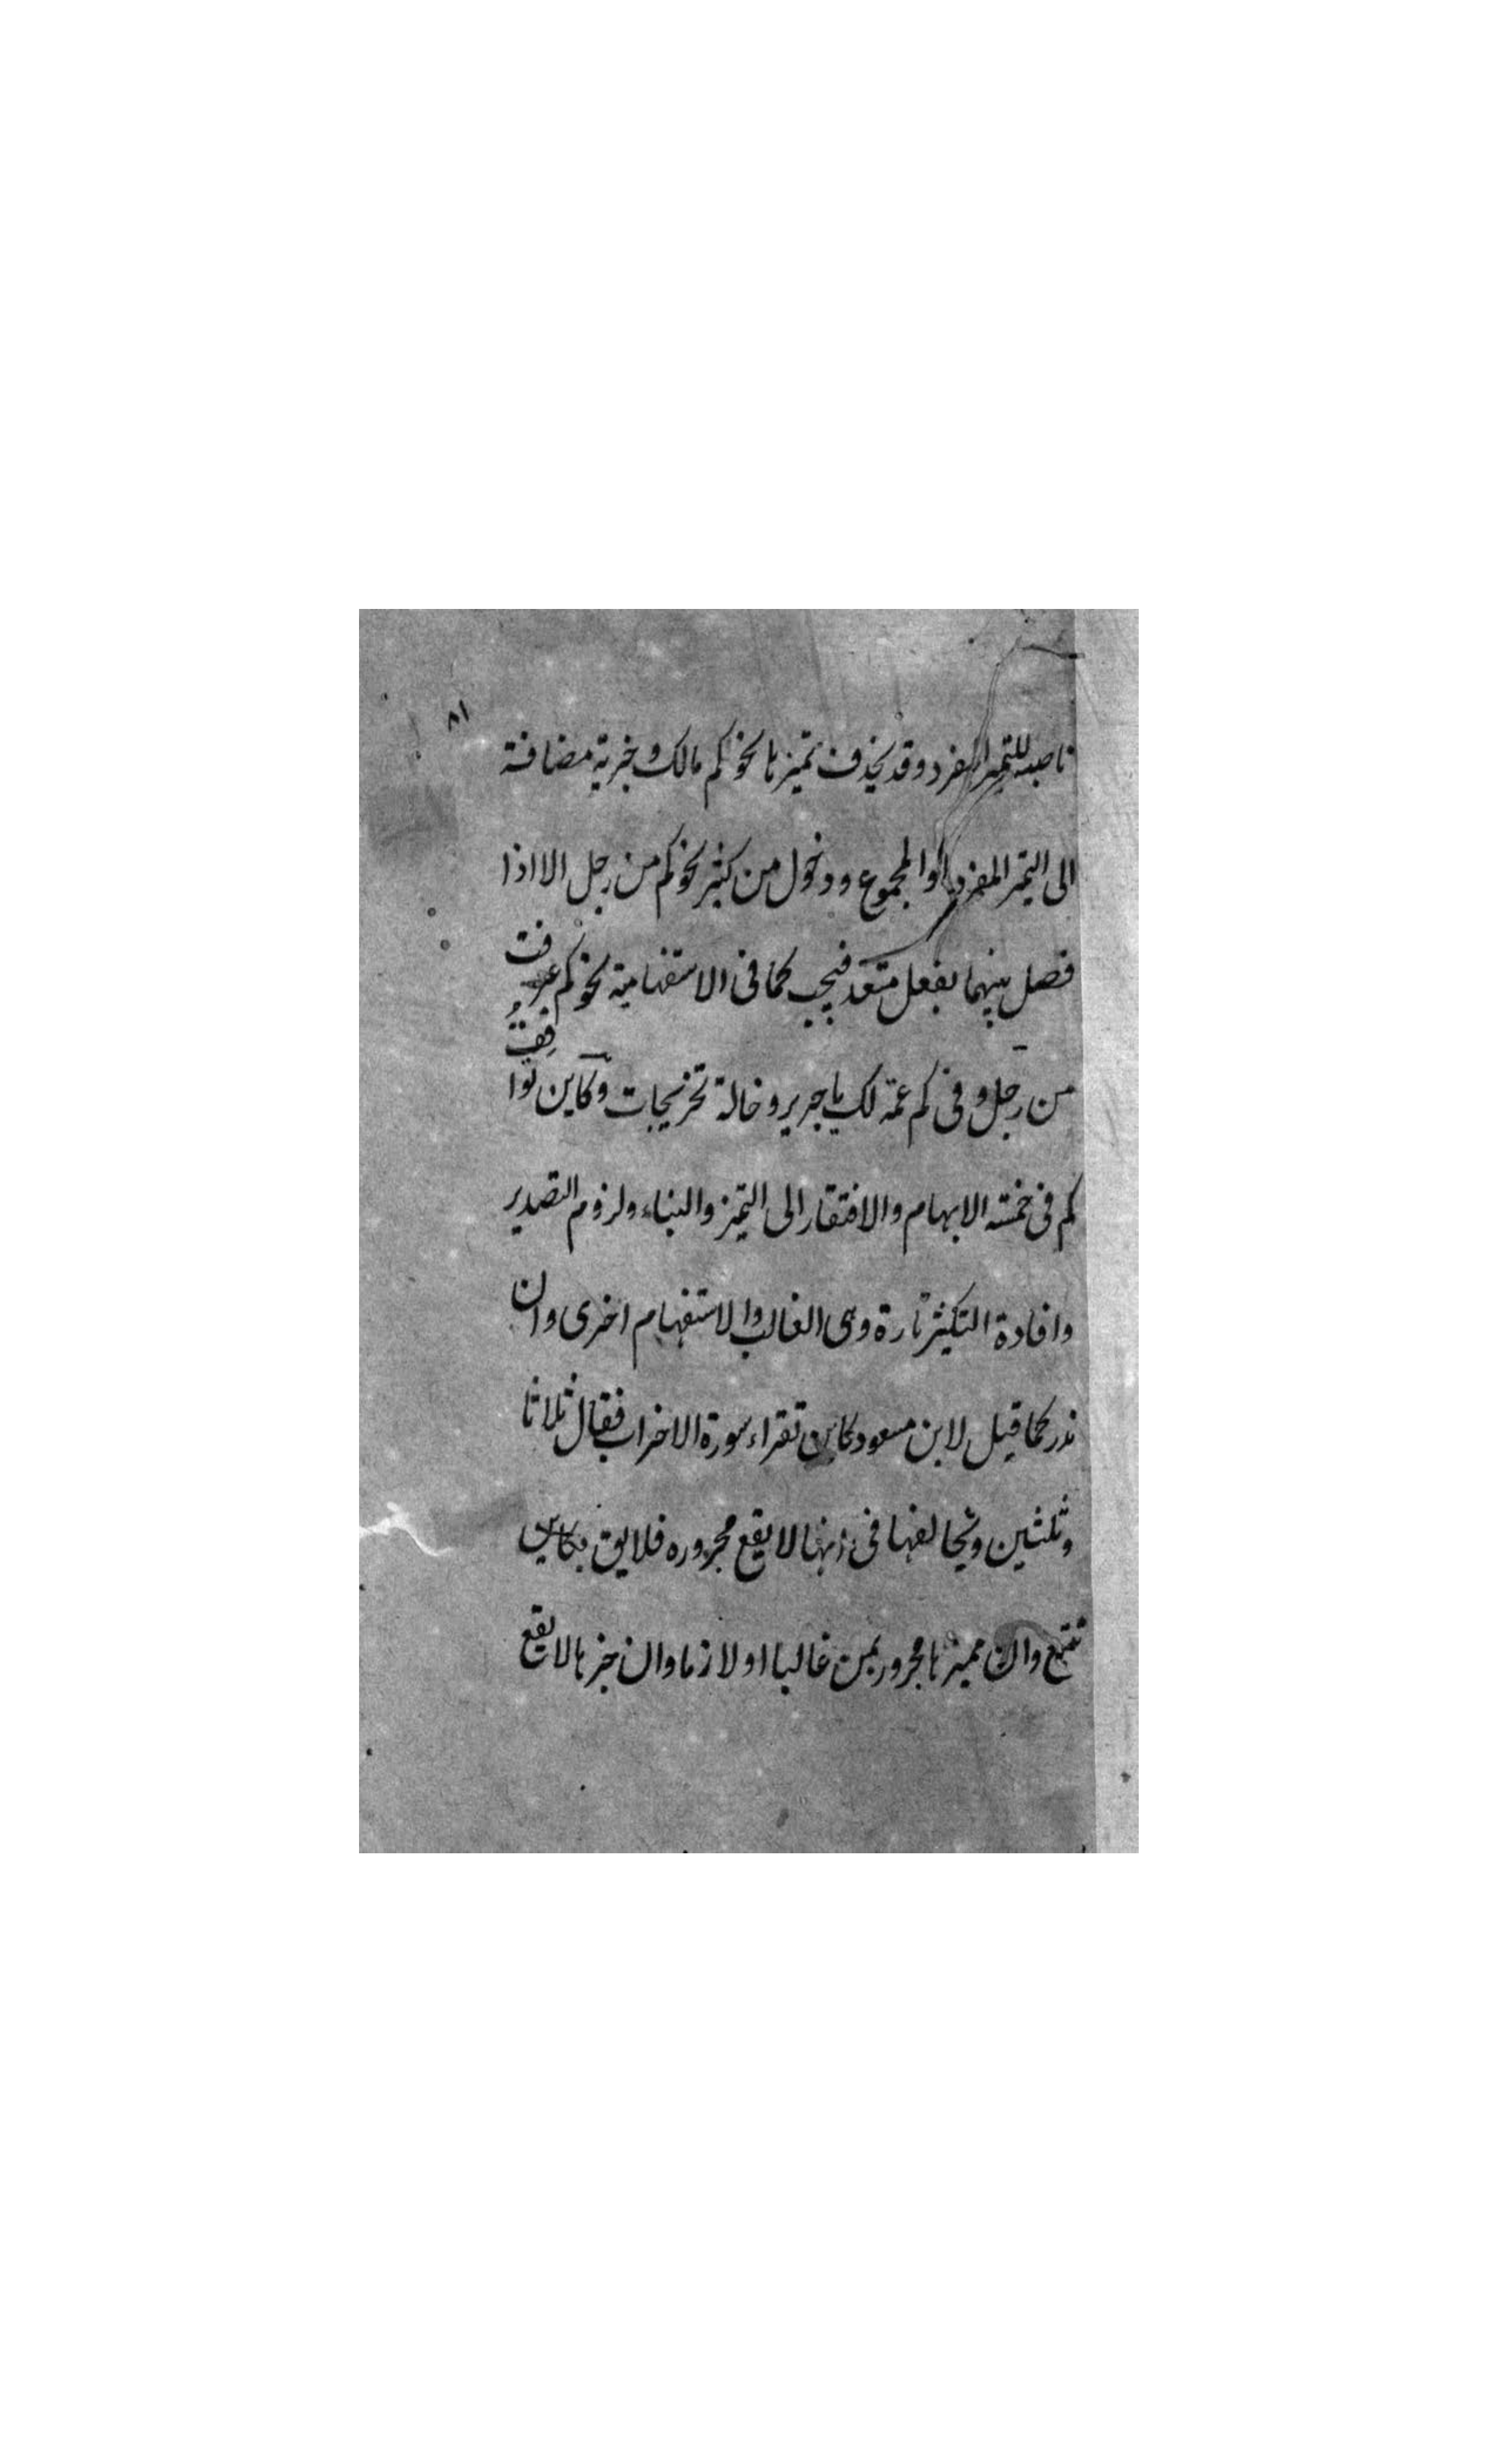 ٨١
ناصبه للتميز المفرد وقد يحذف تميزها نحو كم مالك وخبرية مضافة
الى التميز المفرد او المجموع ودخول من كثير نحو كم من رجل الا اذا
فصل بينهما بفعل متعد فيجب كما فى الاستفهامية نحو كم عرفت
من رجل وفى كم عمة لك يا جرير وخالة تخريجات وكاين توافق
كم فى خمسة الابهام والافتقار الى التميز والبناء ولزوم التصدير
وافادة التكثير تارة وهى الغالب والاستفهام اخرى وان
ندر كما قيل لابن مسعود كاين تقراء سورة الاحزاب فقال ثلاثا
وثلثين ويخالفها فى انها لا يقع مجروره فلا يق بكاين
تبيع وان مميزها مجرور بمن غالبا او لازما وان خبرها لا يقع